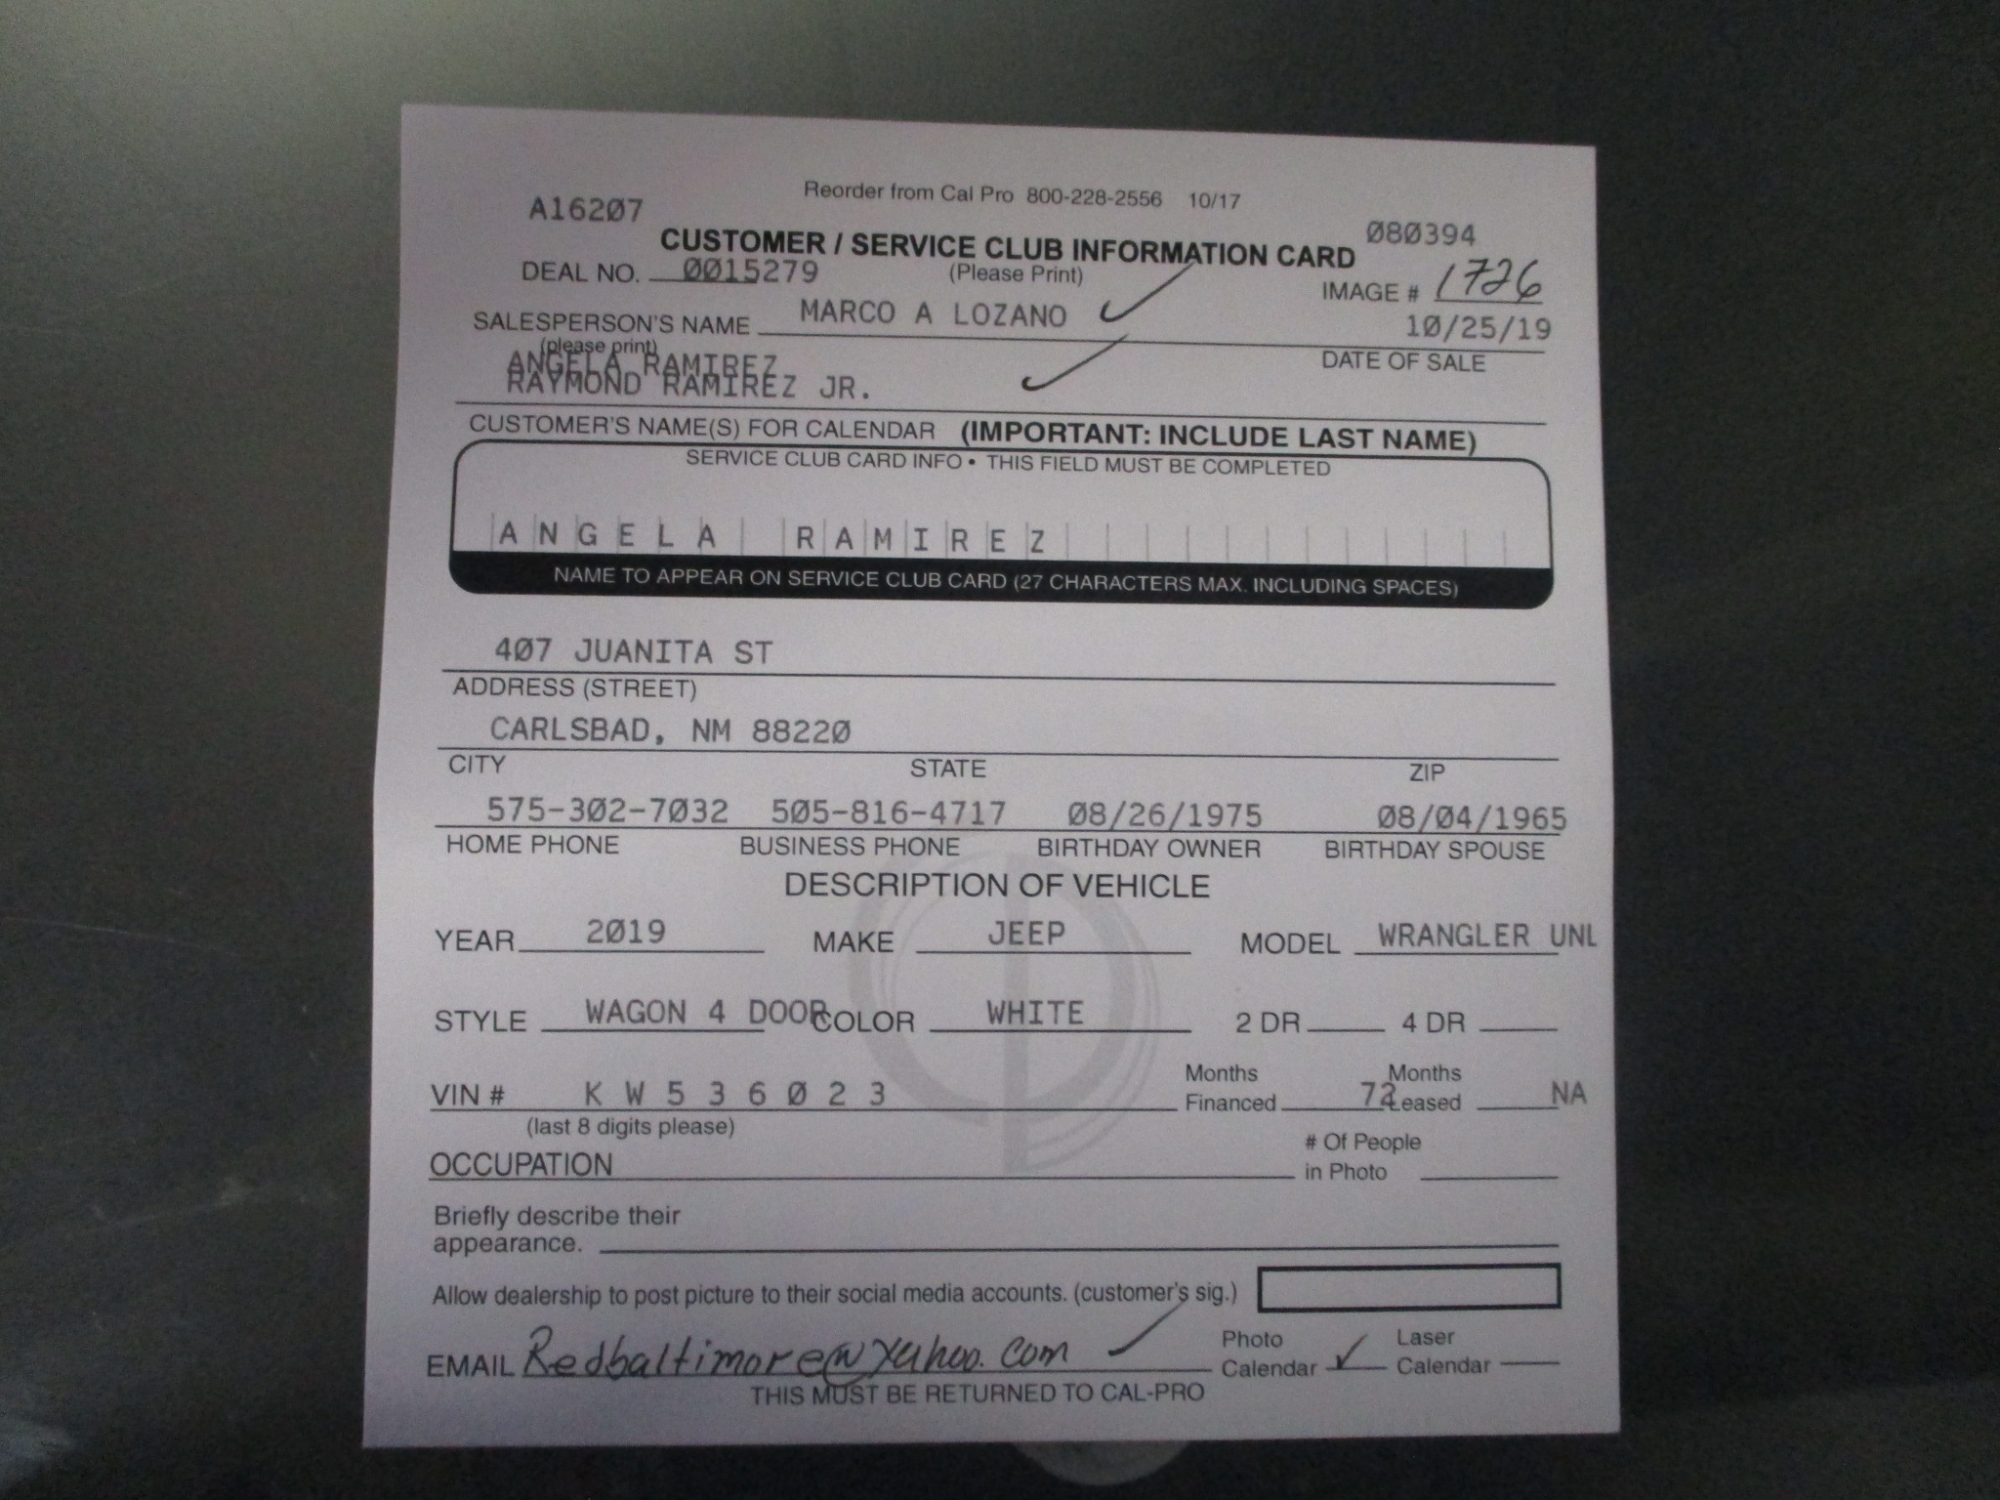 Reorder from Cal Pro 800-228-2556 10/17
A16207
080394
CUSTOMER / SERVICE CLUB INFORMATION CARD
DEAL NO. 0015279 (Please Print) IMAGE # 1726
SALESPERSON'S NAME MARCO A LOZANO 10/25/19
(please print) DATE OF SALE
ANGELA RAMIREZ
RAYMOND RAMIREZ JR.
CUSTOMER'S NAME(S) FOR CALENDAR (IMPORTANT: INCLUDE LAST NAME)
SERVICE CLUB CARD INFO • THIS FIELD MUST BE COMPLETED
ANGELA RAMIREZ
NAME TO APPEAR ON SERVICE CLUB CARD (27 CHARACTERS MAX. INCLUDING SPACES)
407 JUANITA ST
ADDRESS (STREET)
CARLSBAD, NM 88220
CITY STATE ZIP
575-302-7032 505-816-4717 08/26/1975 08/04/1965
HOME PHONE BUSINESS PHONE BIRTHDAY OWNER BIRTHDAY SPOUSE
DESCRIPTION OF VEHICLE
YEAR 2019 MAKE JEEP MODEL WRANGLER UNL
STYLE WAGON 4 DOOR COLOR WHITE 2 DR 4 DR
VIN # KW536023 Months Financed 72 Months Leased NA
(last 8 digits please)
OCCUPATION # Of People in Photo
Briefly describe their
appearance.
Allow dealership to post picture to their social media accounts. (customer's sig.)
EMAIL Redbaltimore@yahoo.com Photo Calendar ✓ Laser Calendar
THIS MUST BE RETURNED TO CAL-PRO